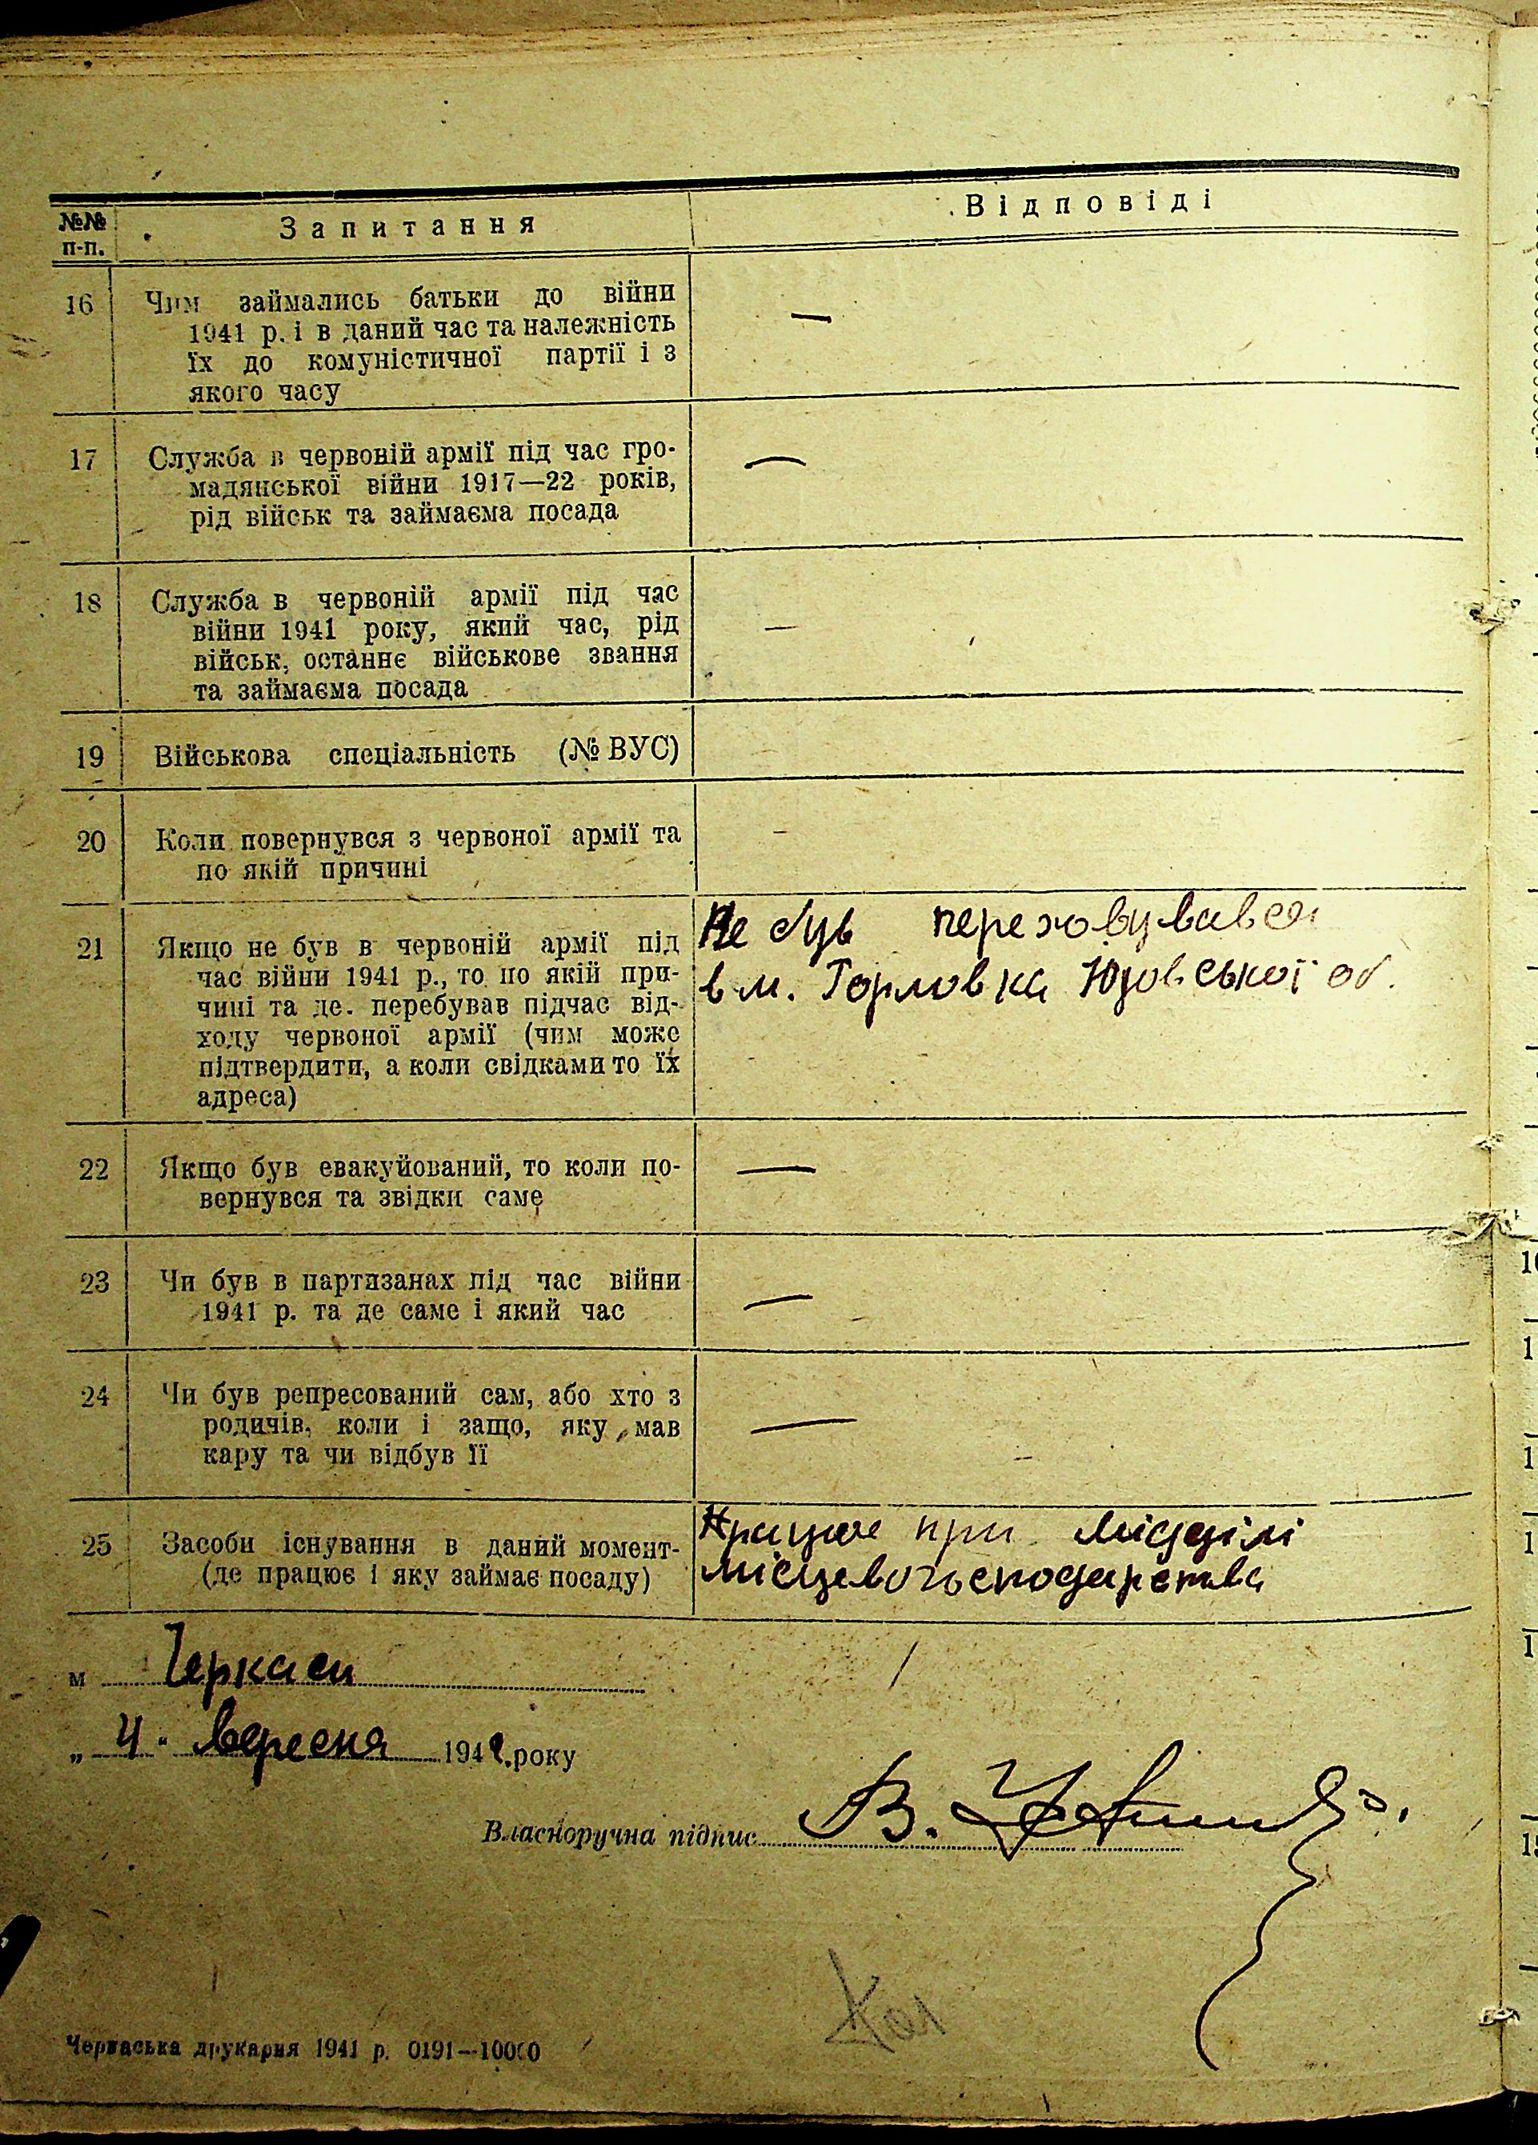 №№ п-п.
Запитання
Відповіді
16
Чим займались батьки до війни
1941 р. і в даний час та належність
їх до комуністичної партії і з
якого часу
—
17
Служба в червоній армії під час гро-
мадянської війни 1917—22 років,
рід військ та займаєма посада
—
18
Служба в червоній армії під час
війни 1941 року, який час, рід
військ, останнє військове звання
та займаєма посада
—
19
Військова спеціальність (№ ВУС)
20
Коли повернувся з червоної армії та
по якій причині
—
21
Якщо не був в червоній армії під
час війни 1941 р., то по якій при-
чині та де. перебував підчас від-
ходу червоної армії (чим може
підтвердити, а коли свідками то їх
адреса)
Не був переховувався
в м. Горловка Юзовської об.
22
Якщо був евакуйований, то коли по-
вернувся та звідки саме
—
23
Чи був в партизанах під час війни
1941 р. та де саме і який час
—
24
Чи був репресований сам, або хто з
родичів, коли і защо, яку мав
кару та чи відбув її
—
25
Засоби існування в даний момент-
(де працює і яку займає посаду)
Працює при
місцевого господарства
м Черкаси
„ 4 " вересня 1942 року
Власноручна підпис В.
Черкаська друкарня 1941 р. 0191—10000